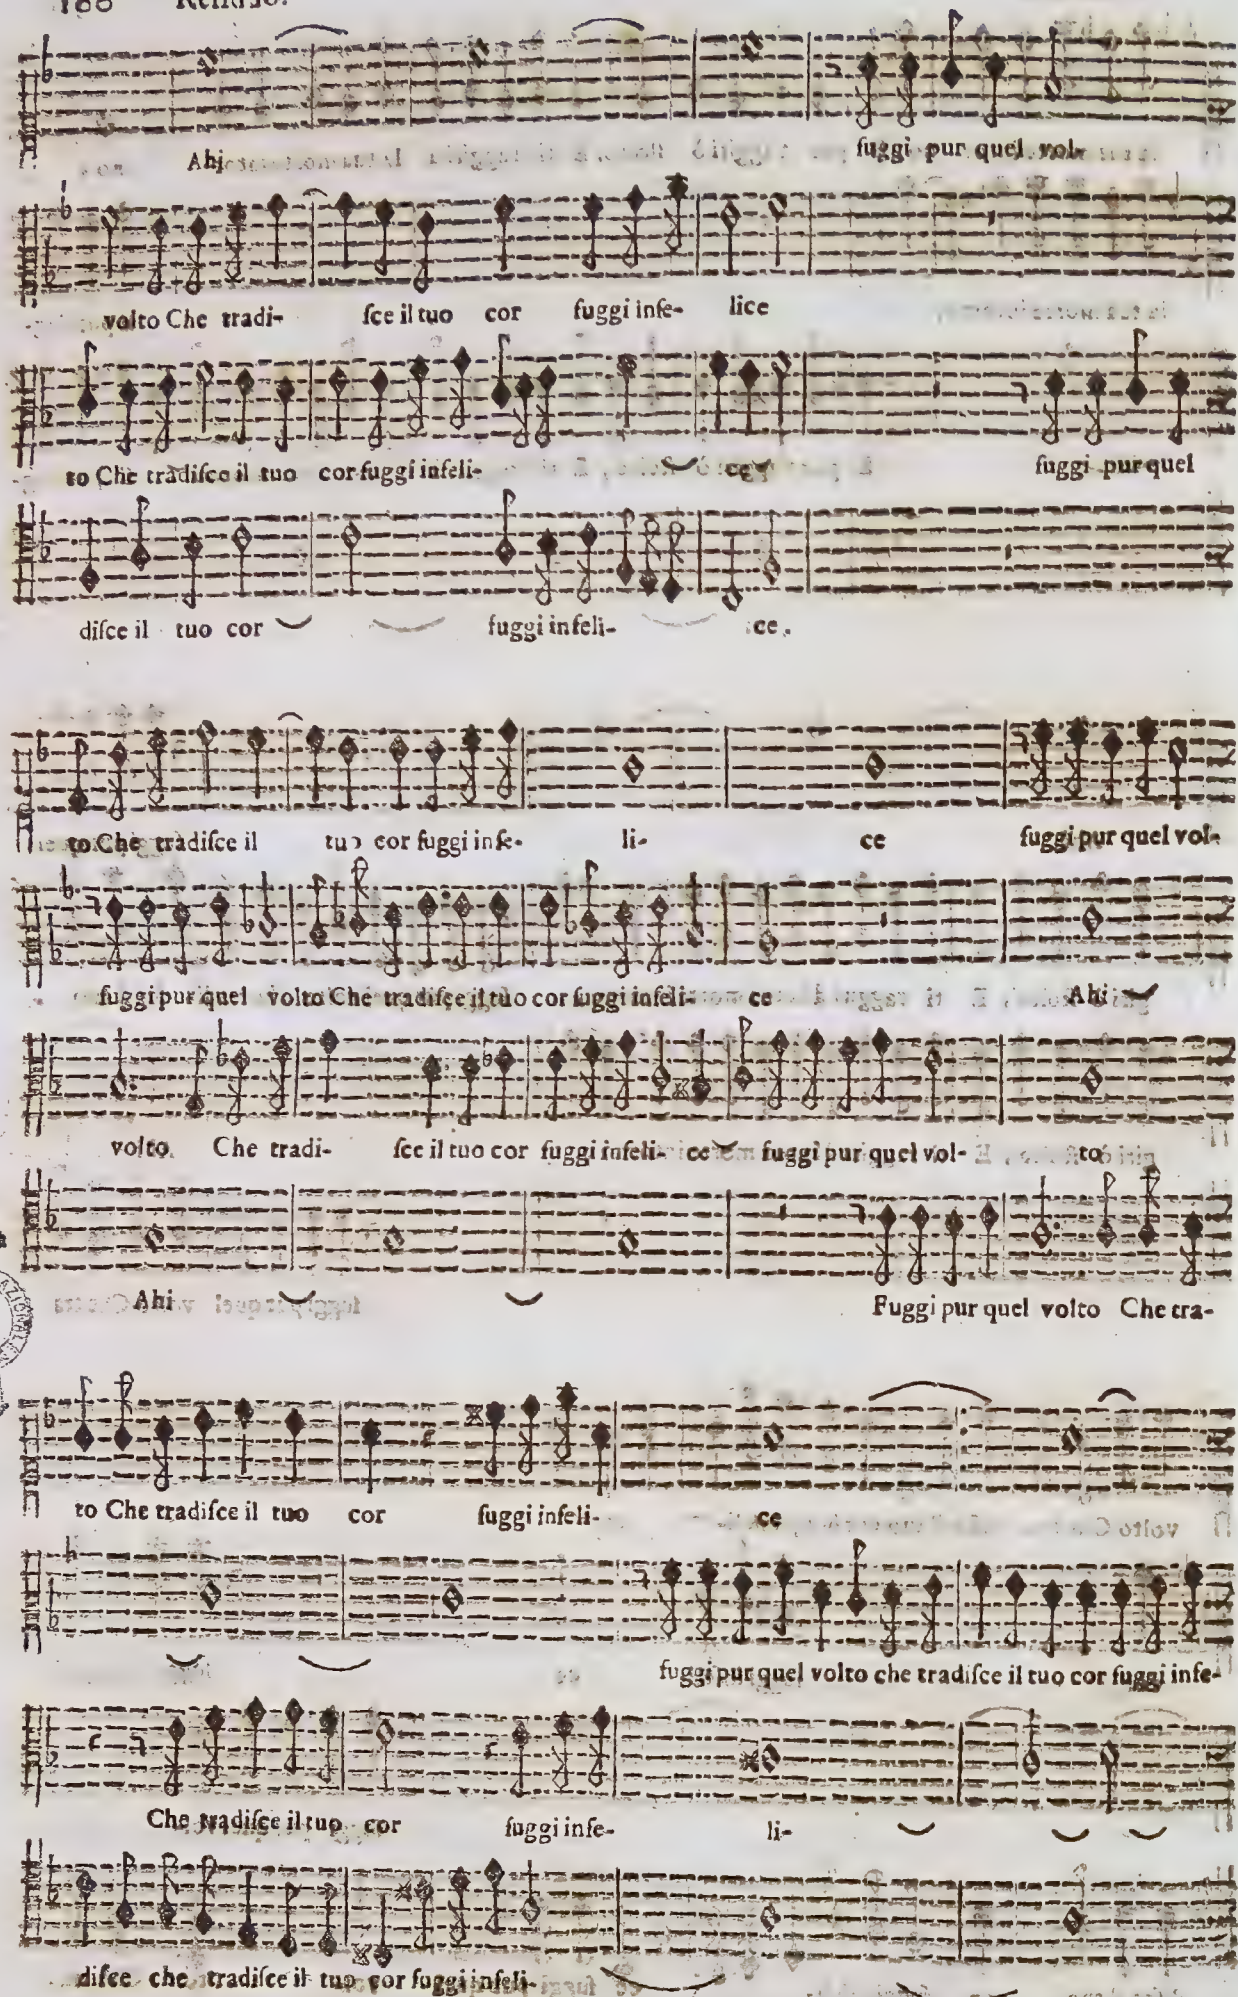 Ahi fuggi pur quel vol-
volto Che tradi- ſce il tuo cor fuggi infe- lice
to Che tradiſce il tuo cor fuggi infeli- ce fuggi pur quel
diſce il tuo cor fuggi infeli- ce.
to Che tradiſce il tuo cor fuggi infe- li- ce fuggi pur quel vol-
fuggi pur quel volto Che tradiſce il tuo cor fuggi infeli- ce Ahi
volto Che tradi- ſce il tuo cor fuggi infeli- ce fuggi pur quel vol- to
Ahi Fuggi pur quel volto Che tra-
to Che tradiſce il tuo cor fuggi infeli- ce
fuggi pur quel volto che tradiſce il tuo cor fuggi infe-
Che tradiſce il tuo cor fuggi infe- li-
diſce che tradiſce il tuo cor fuggi infeli-